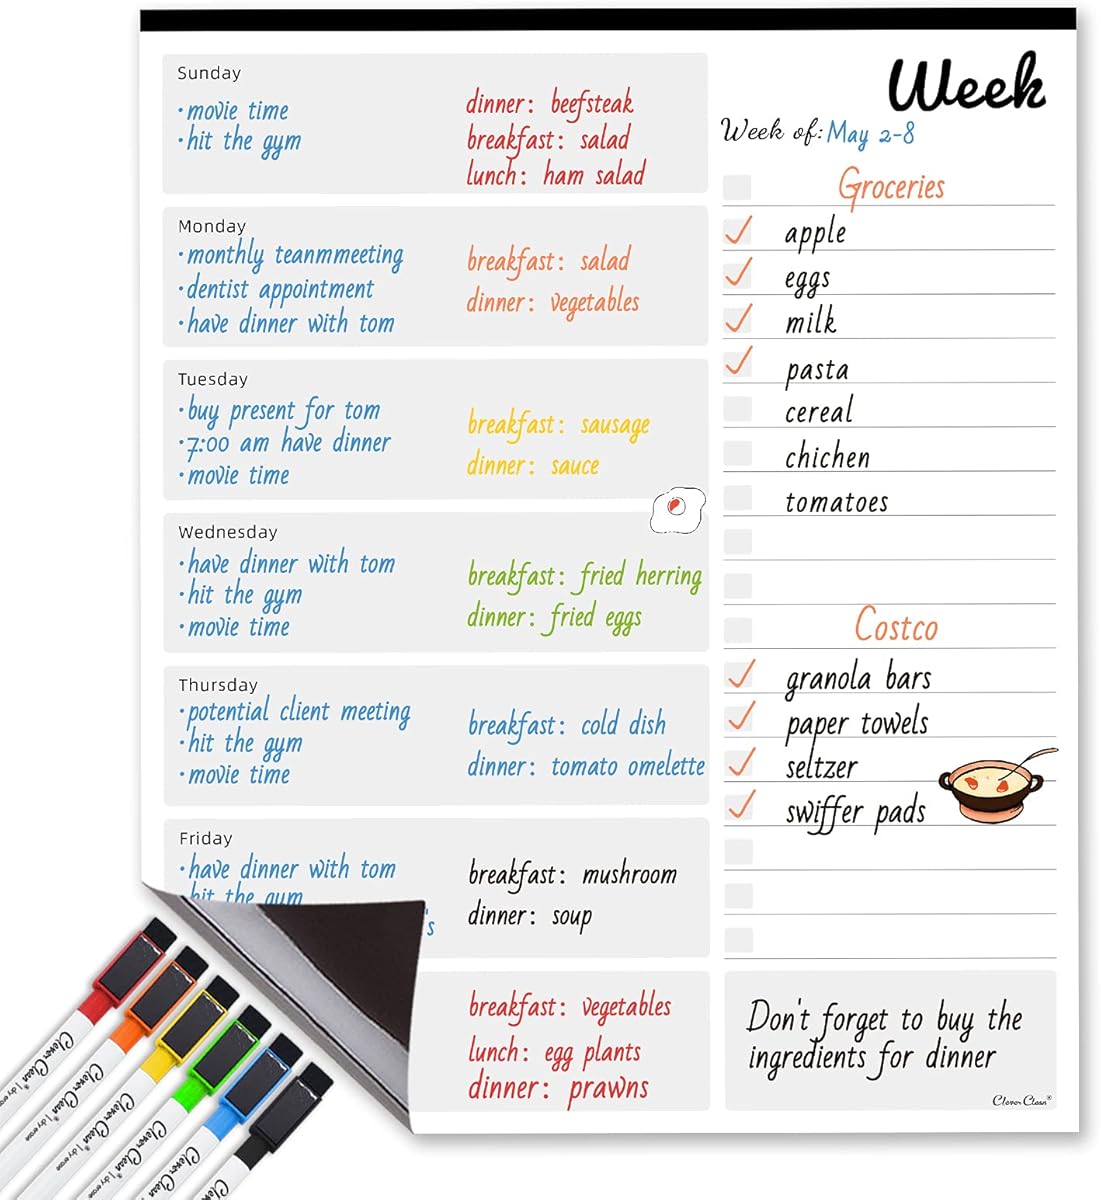 Week
Week of: May 2-8
Sunday
•movie time
•hit the gym
dinner: beefsteak
breakfast: salad
lunch: ham salad
Monday
•monthly teanmmeeting
•dentist appointment
•have dinner with tom
breakfast: salad
dinner: vegetables
Tuesday
•buy present for tom
•7:00 am have dinner
•movie time
breakfast: sausage
dinner: sauce
Wednesday
•have dinner with tom
•hit the gym
•movie time
breakfast: fried herring
dinner: fried eggs
Thursday
•potential client meeting
•hit the gym
•movie time
breakfast: cold dish
dinner: tomato omelette
Friday
•have dinner with tom
•hit the gym
's
breakfast: mushroom
dinner: soup
breakfast: vegetables
lunch: egg plants
dinner: prawns
Groceries
apple
eggs
milk
pasta
cereal
chichen
tomatoes
Costco
granola bars
paper towels
seltzer
swiffer pads
Don't forget to buy the
ingredients for dinner
Clever Clean®
Clever Clean® | dry erase
Clever Clean® | dry erase
Clever Clean® | dry erase
Clever Clean®
Clever Clean
Clever Clean